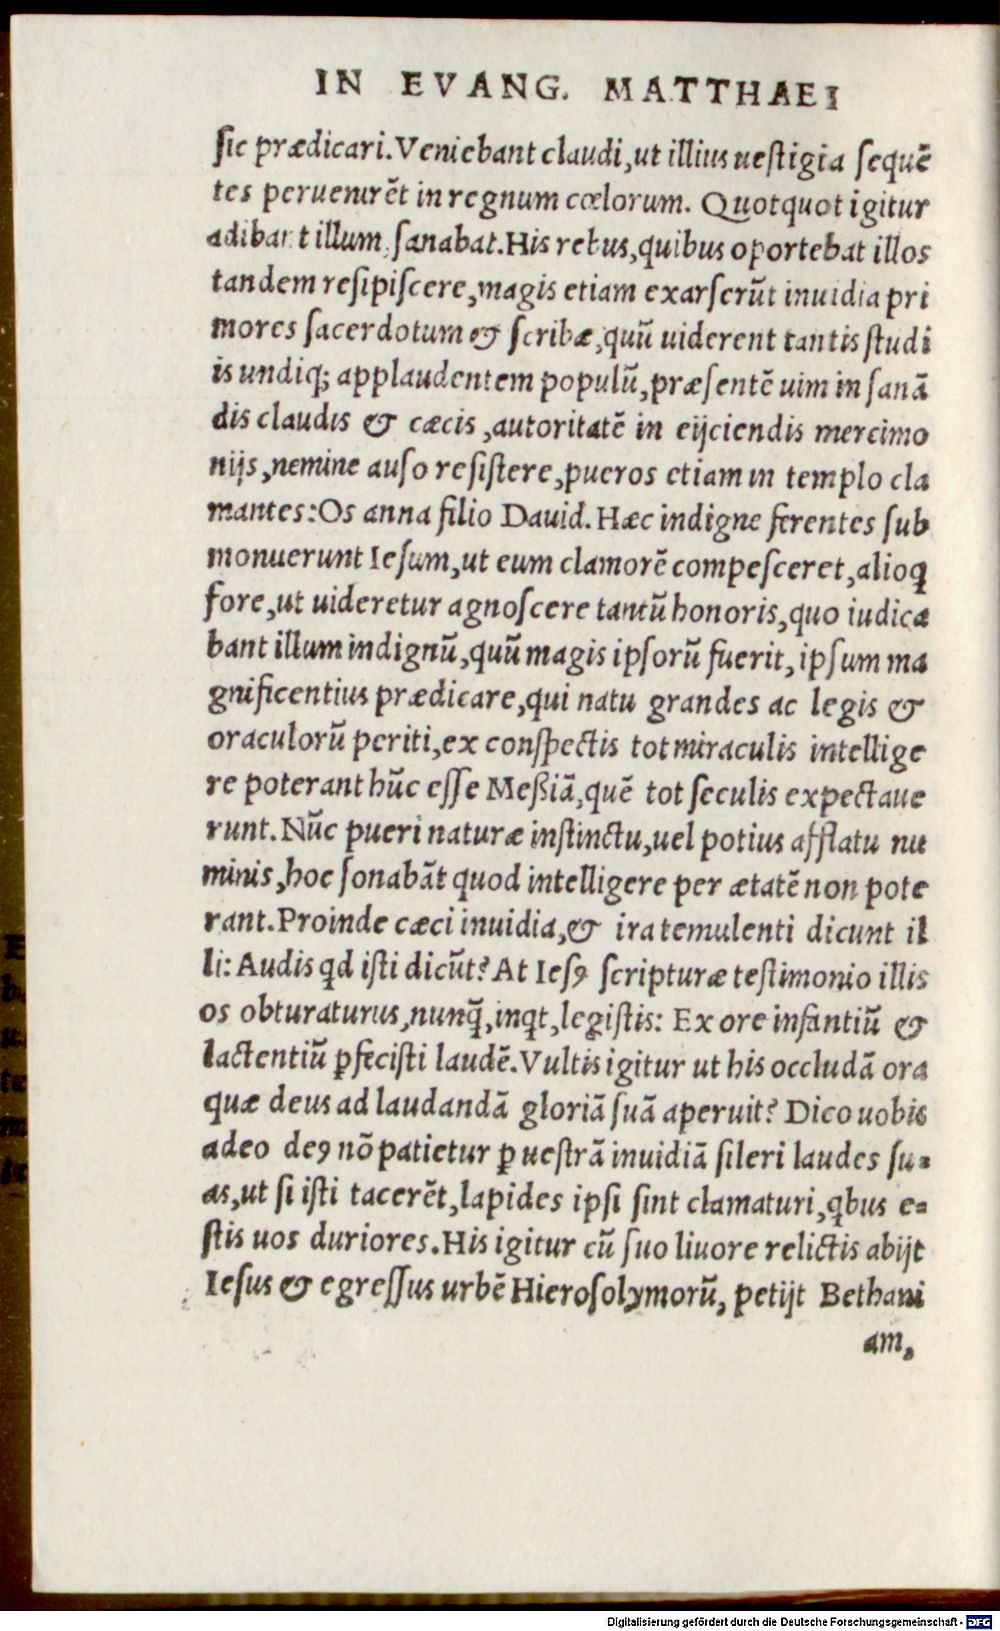 IN EVANG. MATTHAEI
sic prædicari. Veniebant claudi, ut illius uestigia sequẽ
tes peruenirẽt in regnum cœlorum. Quotquot igitur
adibant illum, sanabat. His rebus, quibus oportebat illos
tandem resipiscere, magis etiam exarserũt inuidia pri
mores sacerdotum & scribæ, quũ uiderent tantis studi
is undiq; applaudentem populũ, præsentẽ uim in sanã
dis claudis & cæcis, autoritatẽ in eijciendis mercimo
nijs, nemine auso resistere, pueros etiam in templo cla
mantes: Os anna filio Dauid. Hæc indigne ferentes sub
monuerunt Iesum, ut eum clamorẽ compesceret, alioq̃
fore, ut uideretur agnoscere tantũ honoris, quo iudica
bant illum indignũ, quũ magis ipsorũ fuerit, ipsum ma
gnificentius prædicare, qui natu grandes ac legis &
oraculorũ periti, ex conspectis tot miraculis intellige
re poterant hũc esse Meßiã, quẽ tot seculis expectaue
runt. Nũc pueri naturæ instinctu, uel potius afflatu nu
minis, hoc sonabãt quod intelligere per ætatẽ non pote
rant. Proinde cæci inuidia, & ira temulenti dicunt il
li: Audis qd isti dicũt? At Iesꝰ scripturæ testimonio illis
os obturaturus, nunq̃, inqt, legistis: Ex ore infantiũ &
lactentiũ ꝑfecisti laudẽ. Vultis igitur ut his occludã ora
quæ deus ad laudandã gloriã suã aperuit? Dico uobis
adeo deꝰ nõ patietur ꝑ uestrã inuidiã sileri laudes su-
as, ut si isti tacerẽt, lapides ipsi sint clamaturi, qbus e-
stis uos duriores. His igitur cũ suo liuore relictis abijt
Iesus & egressus urbẽ Hierosolymorũ, petijt Bethani
am,
Digitalisierung gefördert durch die Deutsche Forschungsgemeinschaft - DFG